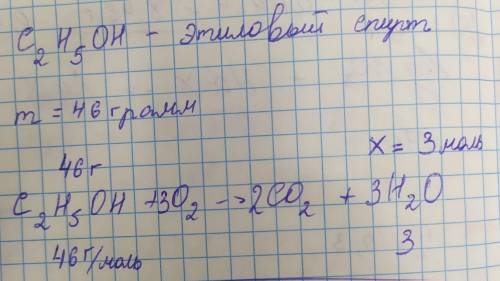 C₂H₅OH - этиловый спирт
m = 46 грамм
46 г
x = 3 моль
C₂H₅OH + 3O₂ → 2CO₂ + 3H₂O
46 г/моль
3